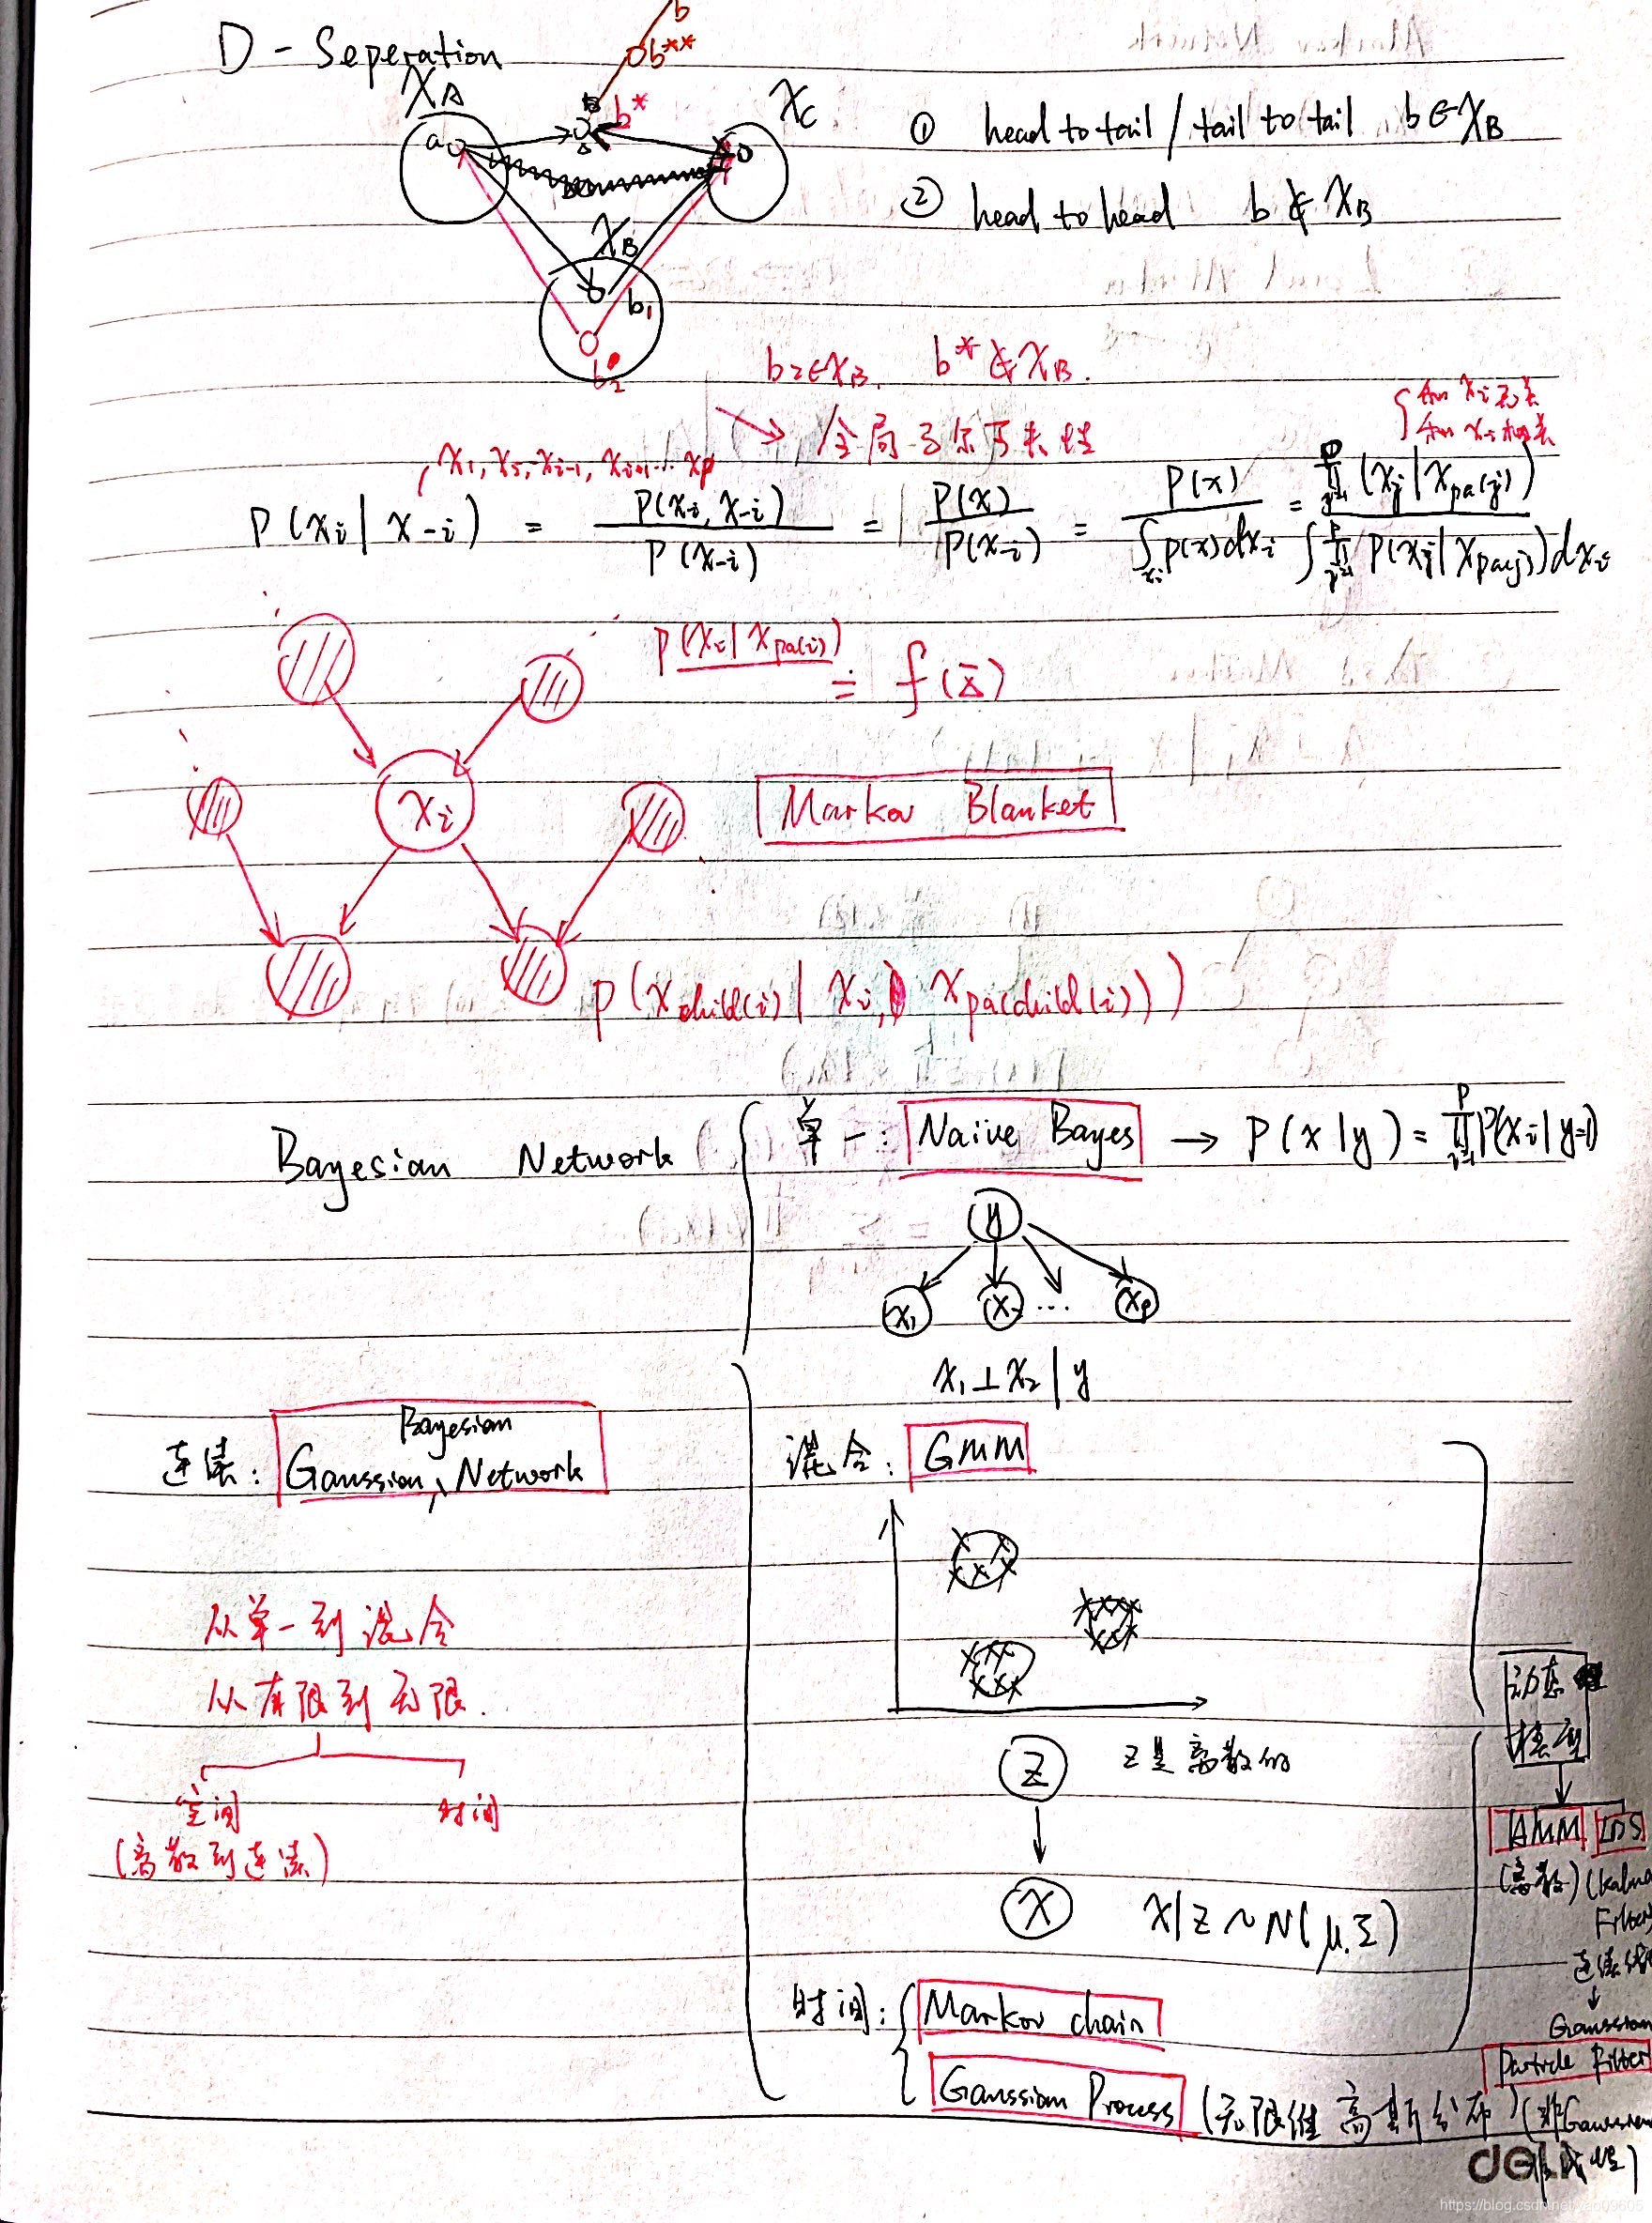 D - Seperation
b
b**
b*
XA
XC
a
XB
b1
b2
① head to tail / tail to tail b∈XB
② head to head b∉XB
b2∈XB. b*∉XB.
全局马尔可夫性
{ 和xi无关
和xi相关
x1, x2, xi-1, xi+1 ... xp
P(xi | x-i) = P(xi, x-i) / P(x-i) = P(x) / P(x-i) = P(x) / ∫xi p(x)dxi = ∏j=1^p (xj | xpa(j)) / ∫ ∏j=1^p P(xj | xpa(j)) dxi
P(xi | xpa(i))
= f(x̄)
xi
Markov Blanket
p(xchild(i) | xi, xpa(child(i)))
Bayesian Network
单一: Naive Bayes → P(x|y) = ∏i=1^p P(xi | y=1)
y
x1 x2 ... xp
x1 ⊥ x2 | y
连续: Gaussian Bayesian Network
混合: GMM
从单一到混合
从有限到无限.
空间
时间
(离散到连续)
Z
Z是离散的
X
X|Z ~ N(μ, Σ)
时间: { Markov chain
Gaussian Process (无限维高斯分布)
动态
模型
HMM LDS
(离散) (Kalma
Filter)
连续
Gaussian
Particle Filter
(非Gaussian
非线性)
deli
https://blog.csdn.net/